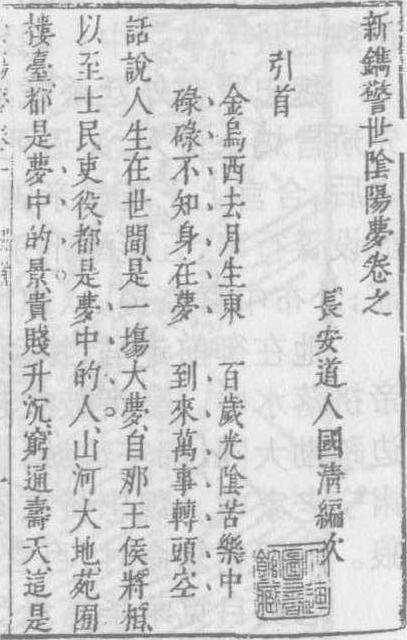 新鐫警世陰陽夢卷之
長安道人國清編次
引首
金烏西去月生東 百歲光陰苦樂中
碌碌不知身在夢 到來萬事轉頭空
話說人生在世間、是一塲大夢、自那王侯將相、
以至士民吏役、都是夢中的人、山河大地、苑囿
樓臺都是夢中的景、貴賤升沉、窮通壽夭、這是